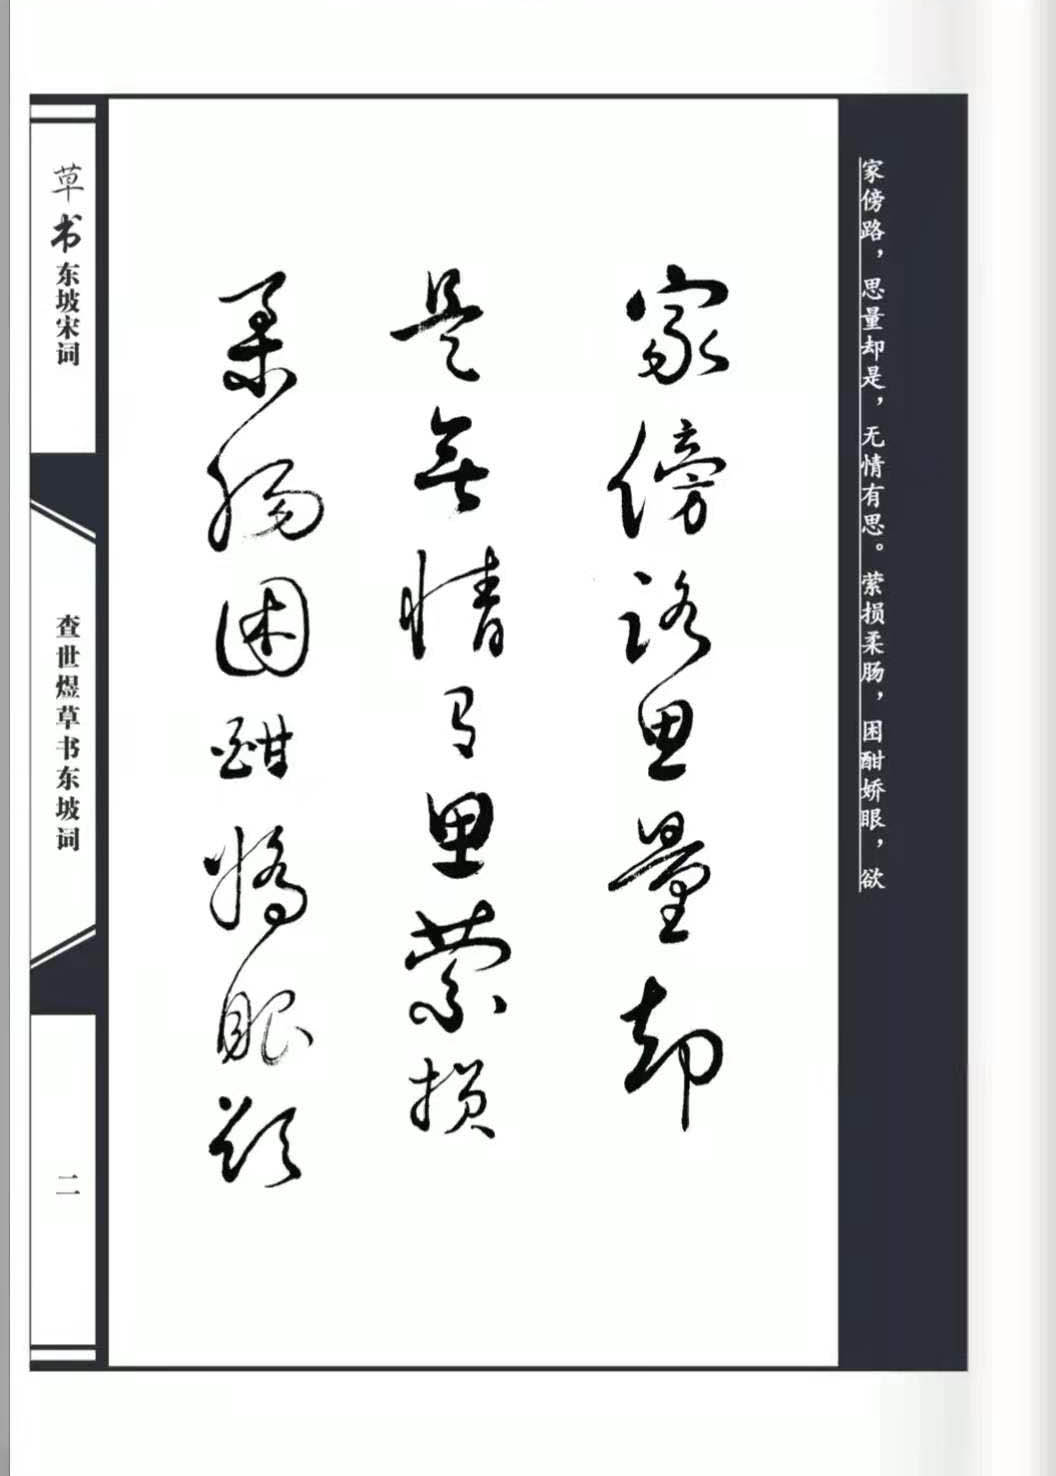 家傍路，思量却是，无情有思。萦损柔肠，困酣娇眼，欲
家傍路思量却
是無情有思萦损
柔肠困酣娇眼欲
草书东坡宋词
查世煜草书东坡词
二